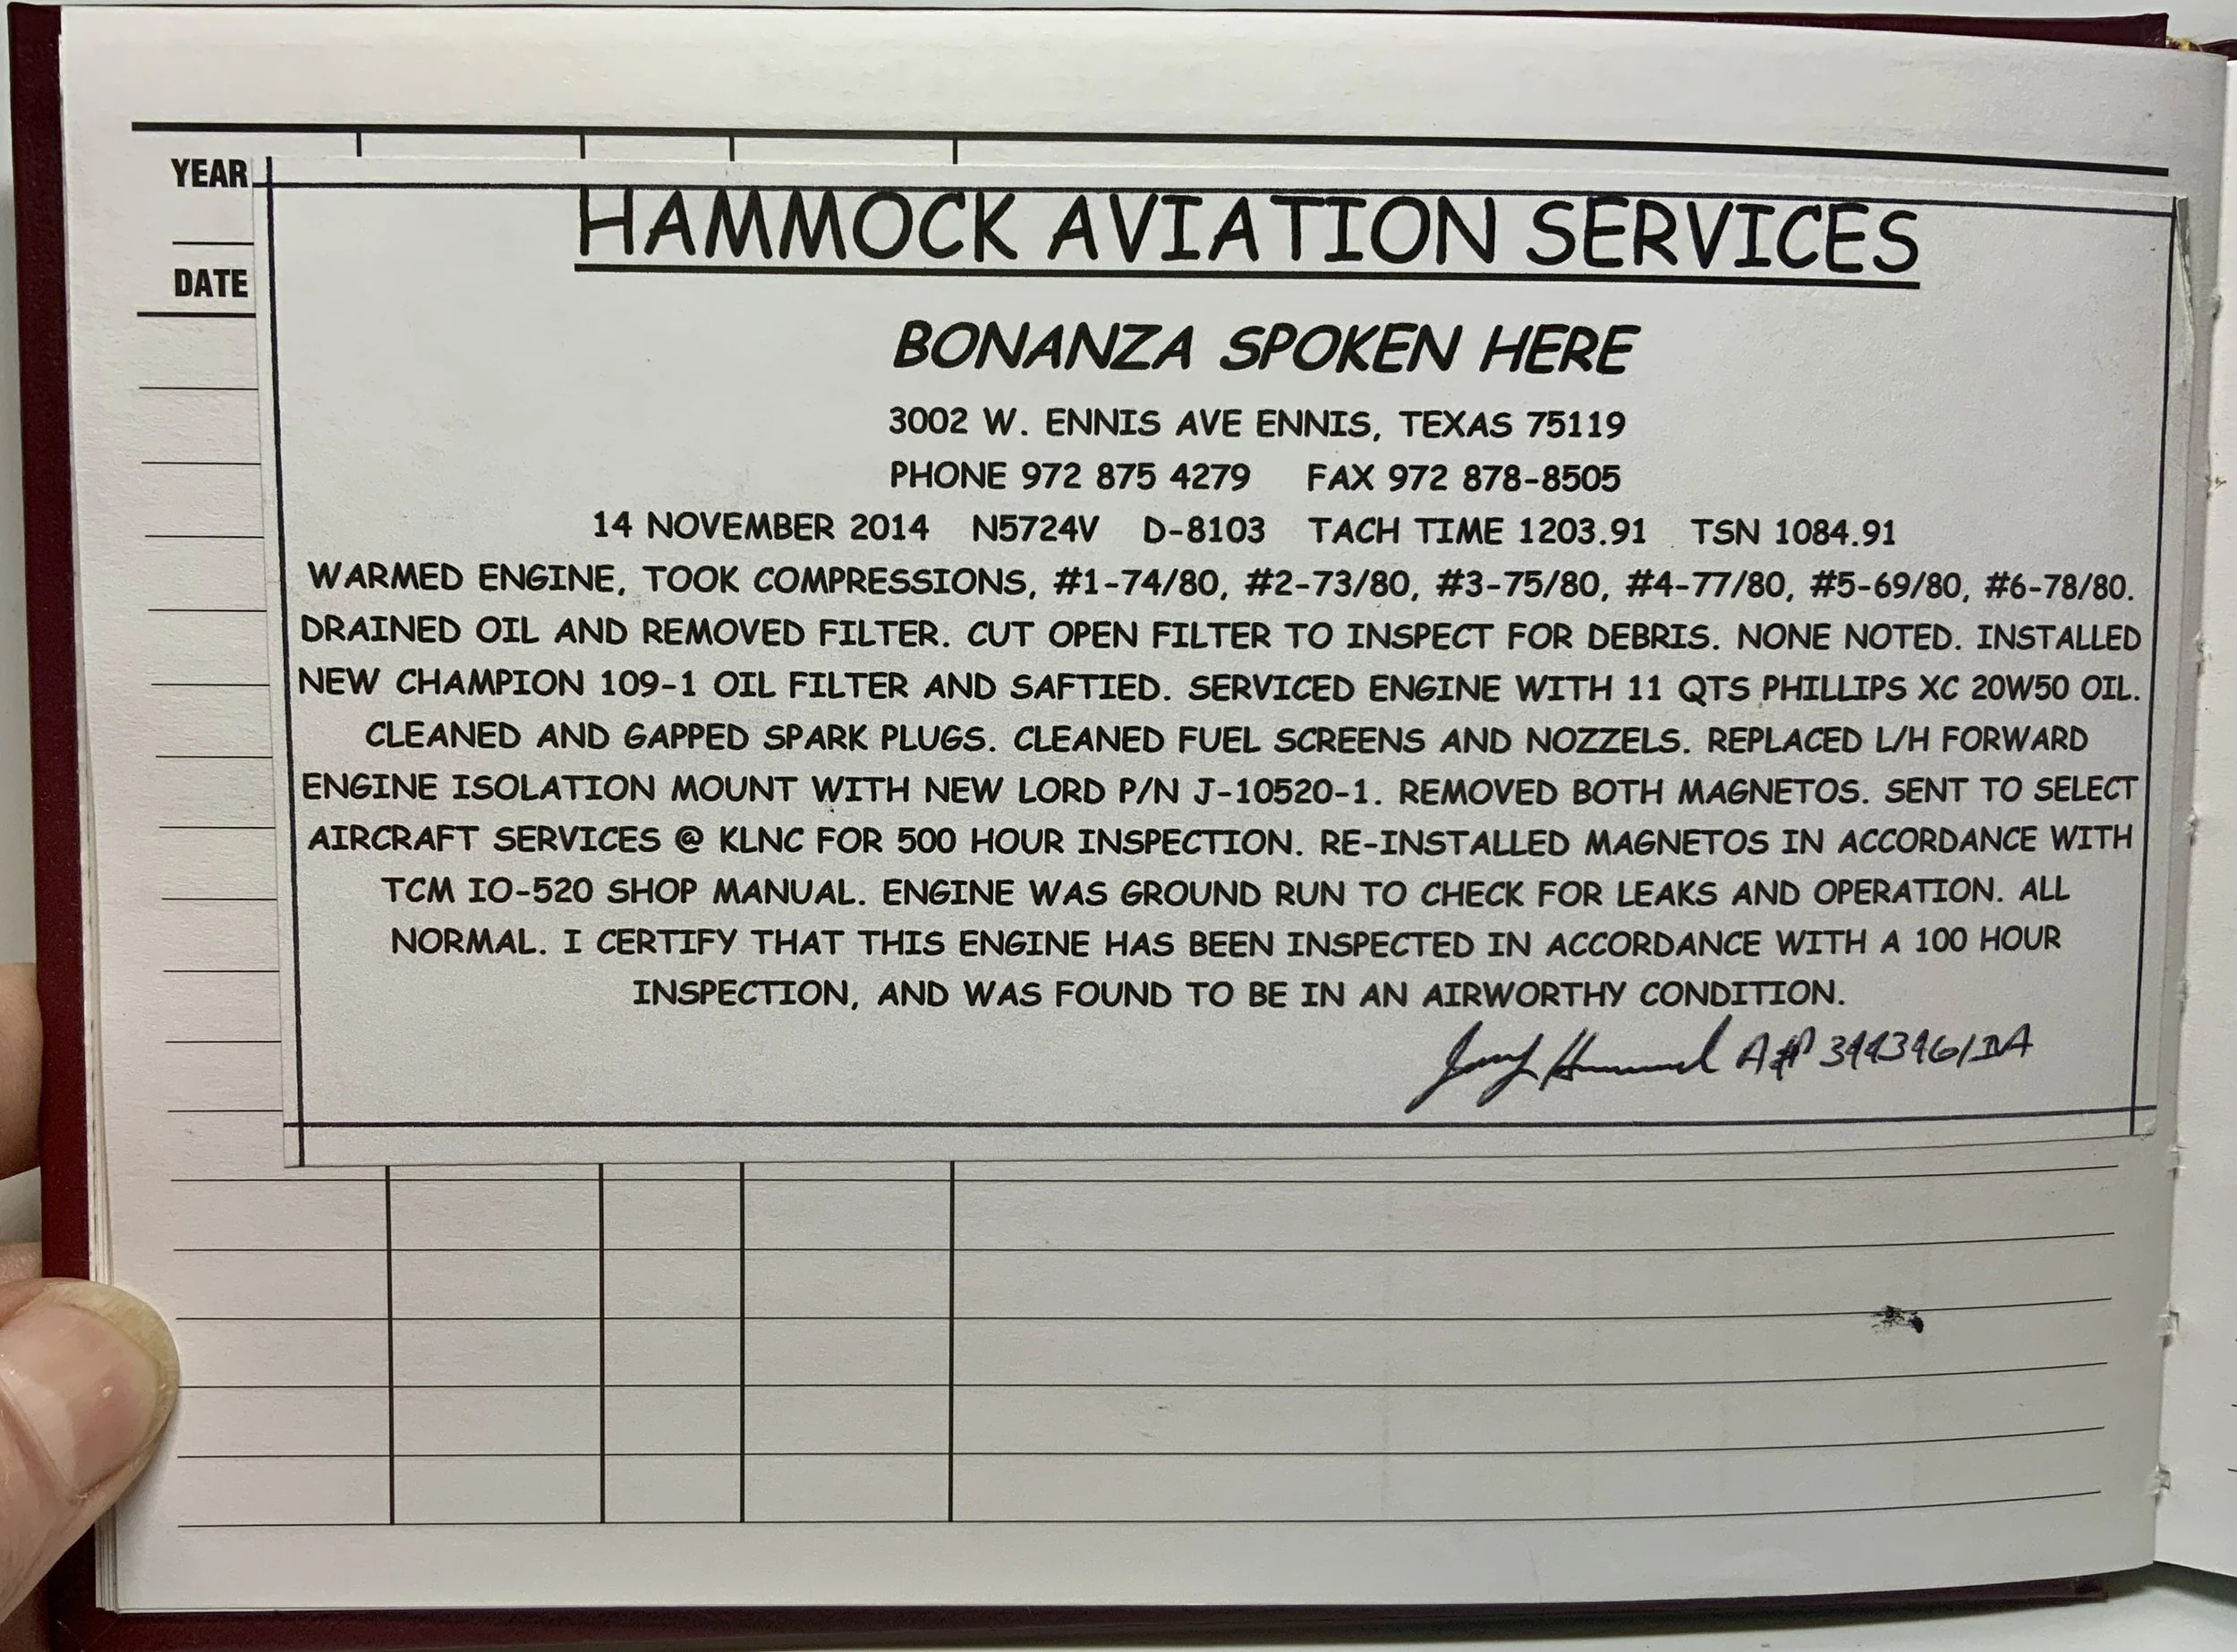 YEAR
DATE
HAMMOCK AVIATION SERVICES
BONANZA SPOKEN HERE
3002 W. ENNIS AVE ENNIS, TEXAS 75119
PHONE 972 875 4279 FAX 972 878-8505
14 NOVEMBER 2014 N5724V D-8103 TACH TIME 1203.91 TSN 1084.91
WARMED ENGINE, TOOK COMPRESSIONS, #1-74/80, #2-73/80, #3-75/80, #4-77/80, #5-69/80, #6-78/80.
DRAINED OIL AND REMOVED FILTER. CUT OPEN FILTER TO INSPECT FOR DEBRIS. NONE NOTED. INSTALLED
NEW CHAMPION 109-1 OIL FILTER AND SAFTIED. SERVICED ENGINE WITH 11 QTS PHILLIPS XC 20W50 OIL.
CLEANED AND GAPPED SPARK PLUGS. CLEANED FUEL SCREENS AND NOZZELS. REPLACED L/H FORWARD
ENGINE ISOLATION MOUNT WITH NEW LORD P/N J-10520-1. REMOVED BOTH MAGNETOS. SENT TO SELECT
AIRCRAFT SERVICES @ KLNC FOR 500 HOUR INSPECTION. RE-INSTALLED MAGNETOS IN ACCORDANCE WITH
TCM IO-520 SHOP MANUAL. ENGINE WAS GROUND RUN TO CHECK FOR LEAKS AND OPERATION. ALL
NORMAL. I CERTIFY THAT THIS ENGINE HAS BEEN INSPECTED IN ACCORDANCE WITH A 100 HOUR
INSPECTION, AND WAS FOUND TO BE IN AN AIRWORTHY CONDITION.